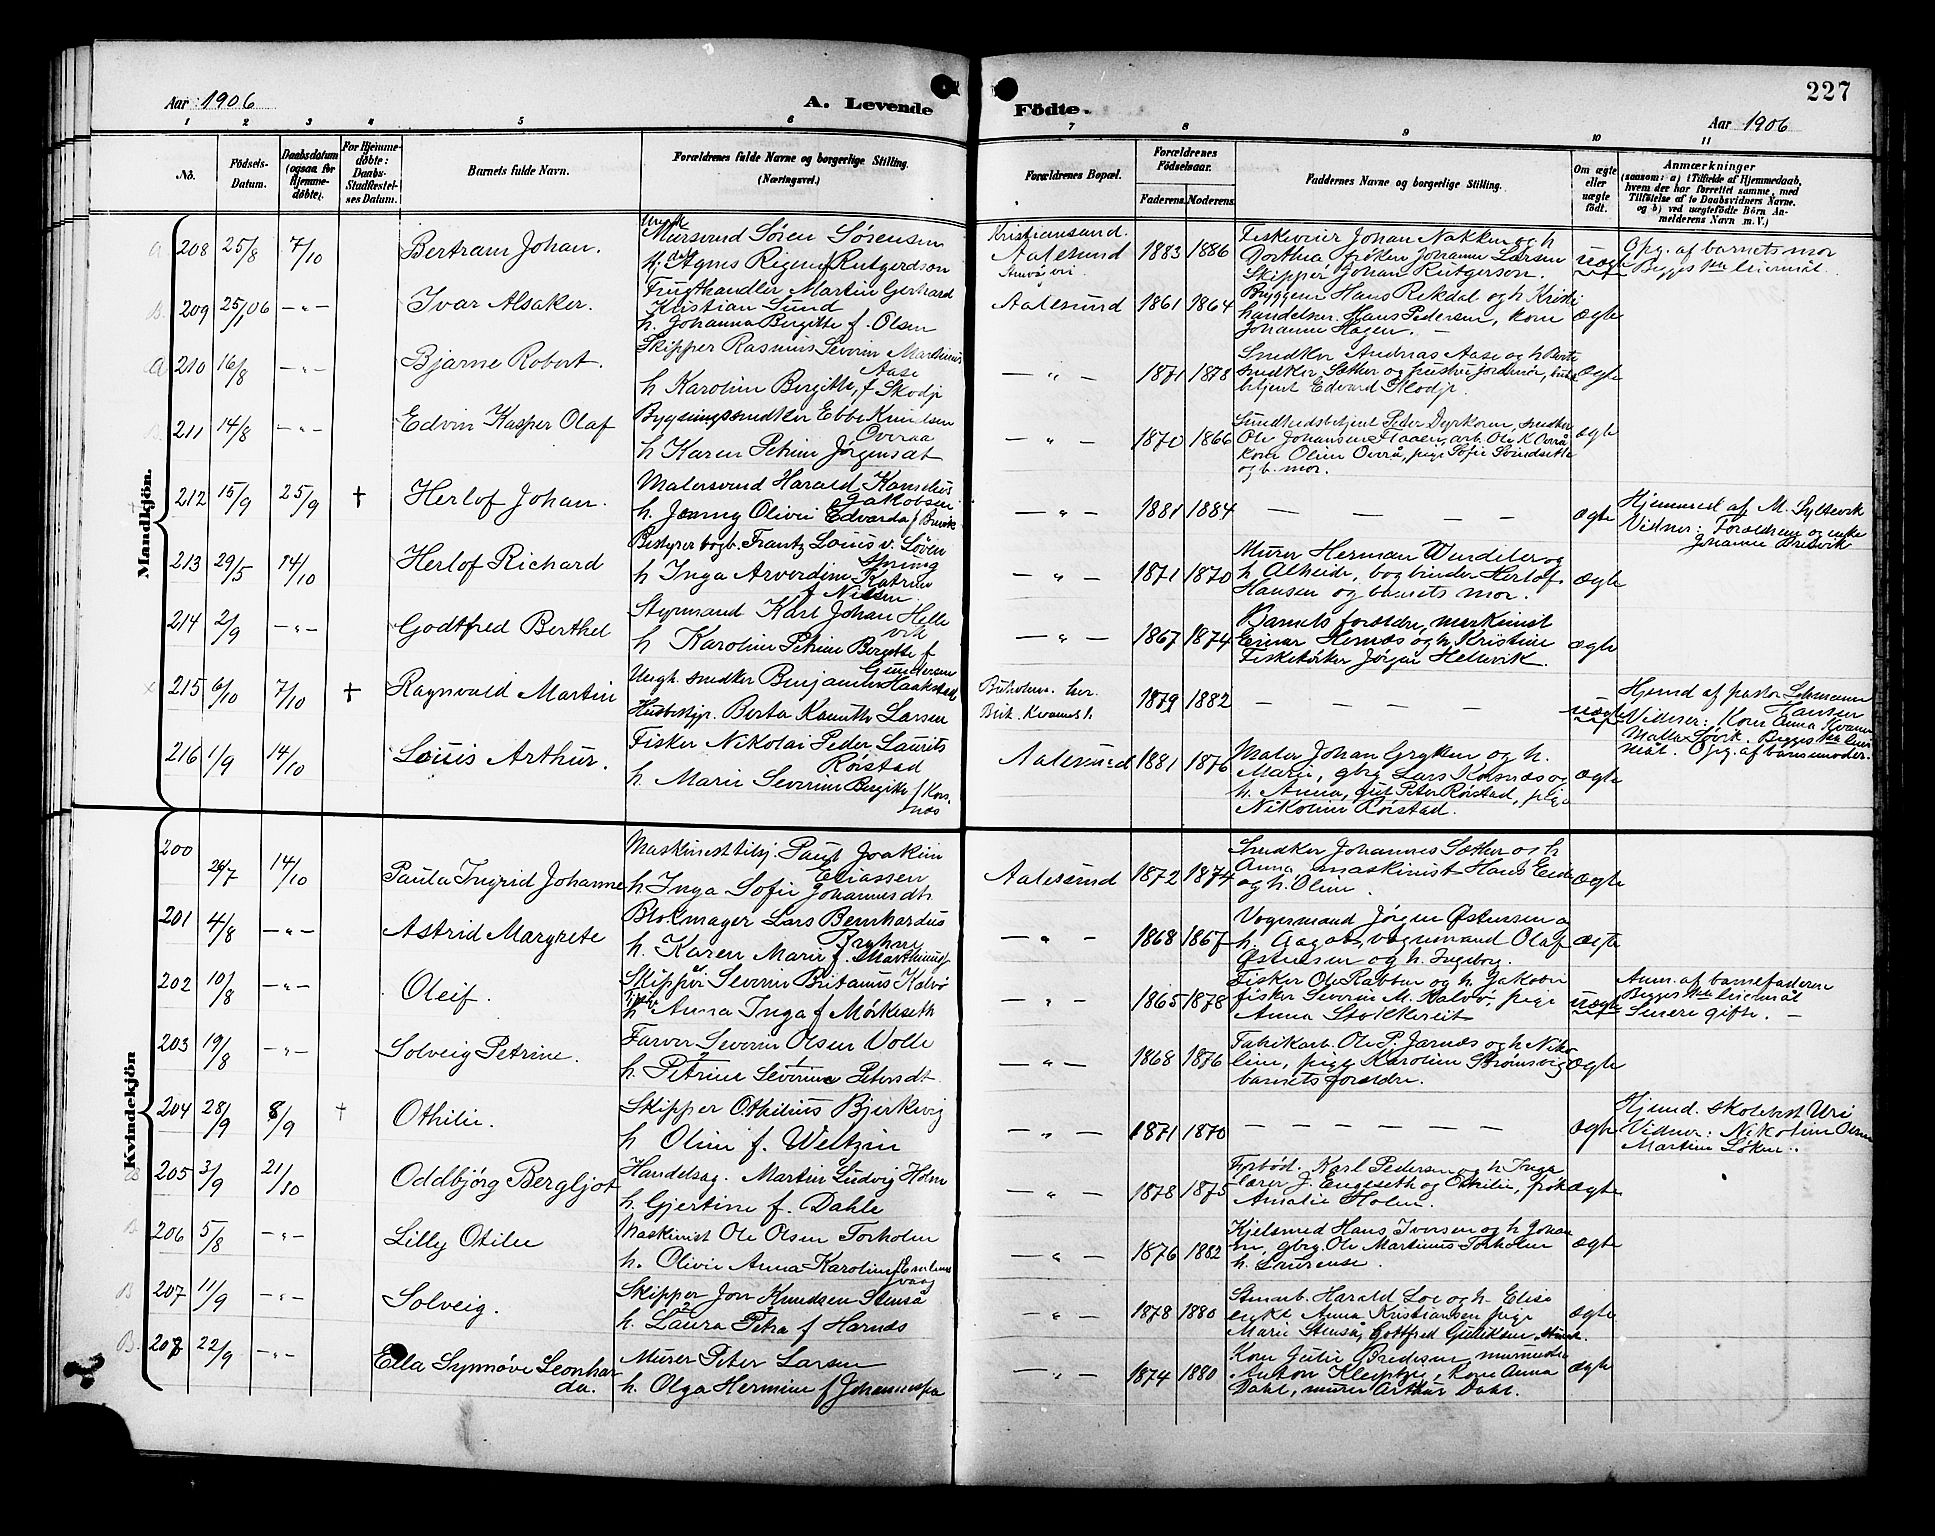 227
Aar 1906 A. Levende Födte. Aar 1906
1 2 3 4 5 6 7 8 9 10 11
No.
Födsels-Datum.
Daabsdatum (ogsaa for Hjemmedöbte).
For Hjemmedöbte: Daabs-Stadfæstelses Datum.
Barnets fulde Navn.
Forældrenes fulde Navne og borgerlige Stilling. (Næringsvei.)
Forældrenes Bopæl.
Forældrenes Födselsaar.
Faderens. Moderens.
Faddernes Navne og borgerlige Stilling.
Om ægte eller uægte födt.
Anmærkninger
(saasom: a) i Tilfælde af Hjemmedaab, hvem der har forrettet samme, med Tilföielse af to Daabsvidners Navne, og b) ved uægtefödte Börn Anmelderens Navn m. V.)
Mandkjön.
208 25/8 7/10 Bertram Johan.
Ungk. Mursvend Sören Sörensen
Agnes Rutgerdson
Kristiansand.
Aalesund 1883 1886
Fiskeveier Johan Nakken og h
Dorthea, fröken Johanna Larsen
Skipper Johan Rutgerson.
uægte
Opg. af barnets mor
Begges 1ste leiermål.
209 25/06 —"— Ivar Alsaker.
Frugthandler Martin Gerhard
Kristian Sund
h. Johanna Bergitte f. Olsen
Aalesund 1861 1864
Bryggem Hans Rekdal og h Kristi
handelsm. Hans Pedersen, kone
Johanne Hagen. —
ægte
210 16/8 —"— Bjarne Robert.
Skipper Rasmus Severin Martinus
Aase
h Karoline Bergitte, f Skodje
—"— 1871 1878
Snedker Andreas Aase og h Berte
Snedker Sæther og
betjent Edvard Skodje
ægte
211 14/8 —"— Edvin Kasper Olaf
Bygningssnedker Ebbe Knudsen
Overaa
h Karen Petrine Jörgensdt
—"— 1870 1866
Sundhedsbetjent Peder Dyrkorn, snedker
Ole Johansen Flaaen, arb. Ole K Overå
kone Oline Overå, pige Sofie
og b. mor.
ægte
212 15/9 25/9 † Herlof Johan.
Malersvend Harald Kornelius
Jakobsen
h. Jenny Olivie Edvarda f Brevik
—"— 1881 1884
— — — —
ægte
Hjemmed af M. Syltevik
Vidner: Forældrene og enke
Johanne Bredvik
213 29/5 14/10 Herlof Richard
Bestyrer bogb. Frantz Louis v. Löven
Sprung
h Inga Arverdine Katrine
f Nilsen.
—"— 1871 1870
Murer Herman Wendeler og
h Alheide, bogbinder Herlof
Hansen og barnets mor.
ægte
214 2/9 —"— Godtfred Berthel
Styrmand Karl Johan Helle
vik
h Karoline Petrine Bergitte f
Gundersen
—"— 1867 1874
Barnets forældre, maskinist
Einar Hernæs og h. Kristine
Fisketörker Jörgen Hellevik.
ægte
215 6/10 7/10 † Ragnvald Martin
Ungk. snedker Benjamin Haakstad
Husbestyr. Berta Larsen
1879 1882
— — — —
uægte
Hjemd af pastor
Hansen
Vidner: Kone Anna Kvamm
Malla Lövik. Begges 1ste leier
mål. Opg. af barnemoder.
216 1/9 14/10 Louis Arthur.
Fisker Nikolai Peder Laurits
Röistad
h Marie Severine Bergitte f Kors
næs
Aalesund 1881 1876
Maler Johan Grytten og h.
Marie, gbrg Lars Korsnæs og
h. Anna, gut Peter Röistad, pige
Nikoline Röistad.
ægte
Kvindekjön
200 26/7 14/10 Paula Ingrid Johanne
Maskinist tilsj. Paul Joakim
Eliassen
h Inga Sofie Johannesdt
Aalesund 1872 1874
Snedker Johannes Sæther og h
Anna, maskinist Hans Eide
og h. Oline.
ægte
201 4/8 —"— Astrid Margrete
Blokmager Lars Bernhardus
Bryhne
h. Karen Marie f. Marthinusd
—"— 1868 1867
Vognmand Jörgen Östensen og
h. Aagot, vognmand Olaf
Östensen og h. Ingeborg.
ægte
202 10/8 —"— Oleif.
Skipper Severin Britanus Kalvö
Anna Inga f Mörkeseth
—"— 1865 1878
Fisker Ole Rabben og h Jakobine
fisker Severin M. Kalvö, pige
Anna Stokkereit
uægte
Anm. af barnefaderen
Begges 1ste leiermål
Senere gifte. —
203 19/8 —"— Solveig Petrine.
Farver Severin Olsen Volle
h. Petrine Severine Petersdt.
—"— 1868 1876
Fabrikarb. Ole P. Jarnæs og h Niko
line, pige Karoline Strömsvig
barnets forældre.
ægte
204 28/9 8/9 † Othilie.
Skipper Othilius Bjerkevig
h Oline f. Weltzin
—"— 1871 1870
— — — —
ægte
Hjemd. skolebest Uri
Vidner: Nikoline Olsen
Martine Löken.
205 3/9 21/10 Oddbjörg Bergljot
Handelsag. Martin Ludvig Holm
h. Gjertine f. Dahle
—"— 1878 1875
Fyrbød. Karl Pedersen og h Inga
lærer J. Engeseth og Othilie, frök
Amalie Holm.
ægte
206 5/8 —"— Lilly Otilie
Maskinist Ole Olsen Torholm
h. Olivie Anna Karoline f Emblems
vaag
—"— 1876 1882
Kjelsmed Hans Iversen og h Johan
en, gbrg. Ole Martinus Torholm
h. Laurense.
ægte
207 11/9 —"— Solveig.
Skipper Jon Knudsen Stenså
h. Laura Petra f Harnæs
—"— 1878 1880
Stenarb. Harald Loe og h. Elise
enke Anna Kristiansen pige
Marie Stenså, Gottfred Gulliksen
ægte
208 22/9 —"— Ella Synnöve Leonhar
da.
Murer Peter Larsen
h. Olga Hermine f Johannessen
—"— 1874 1880
Kone Julie Bredesen murmester
Anton Kleppe, kone Anna
Dahl, murer Arthur Dahl.
ægte